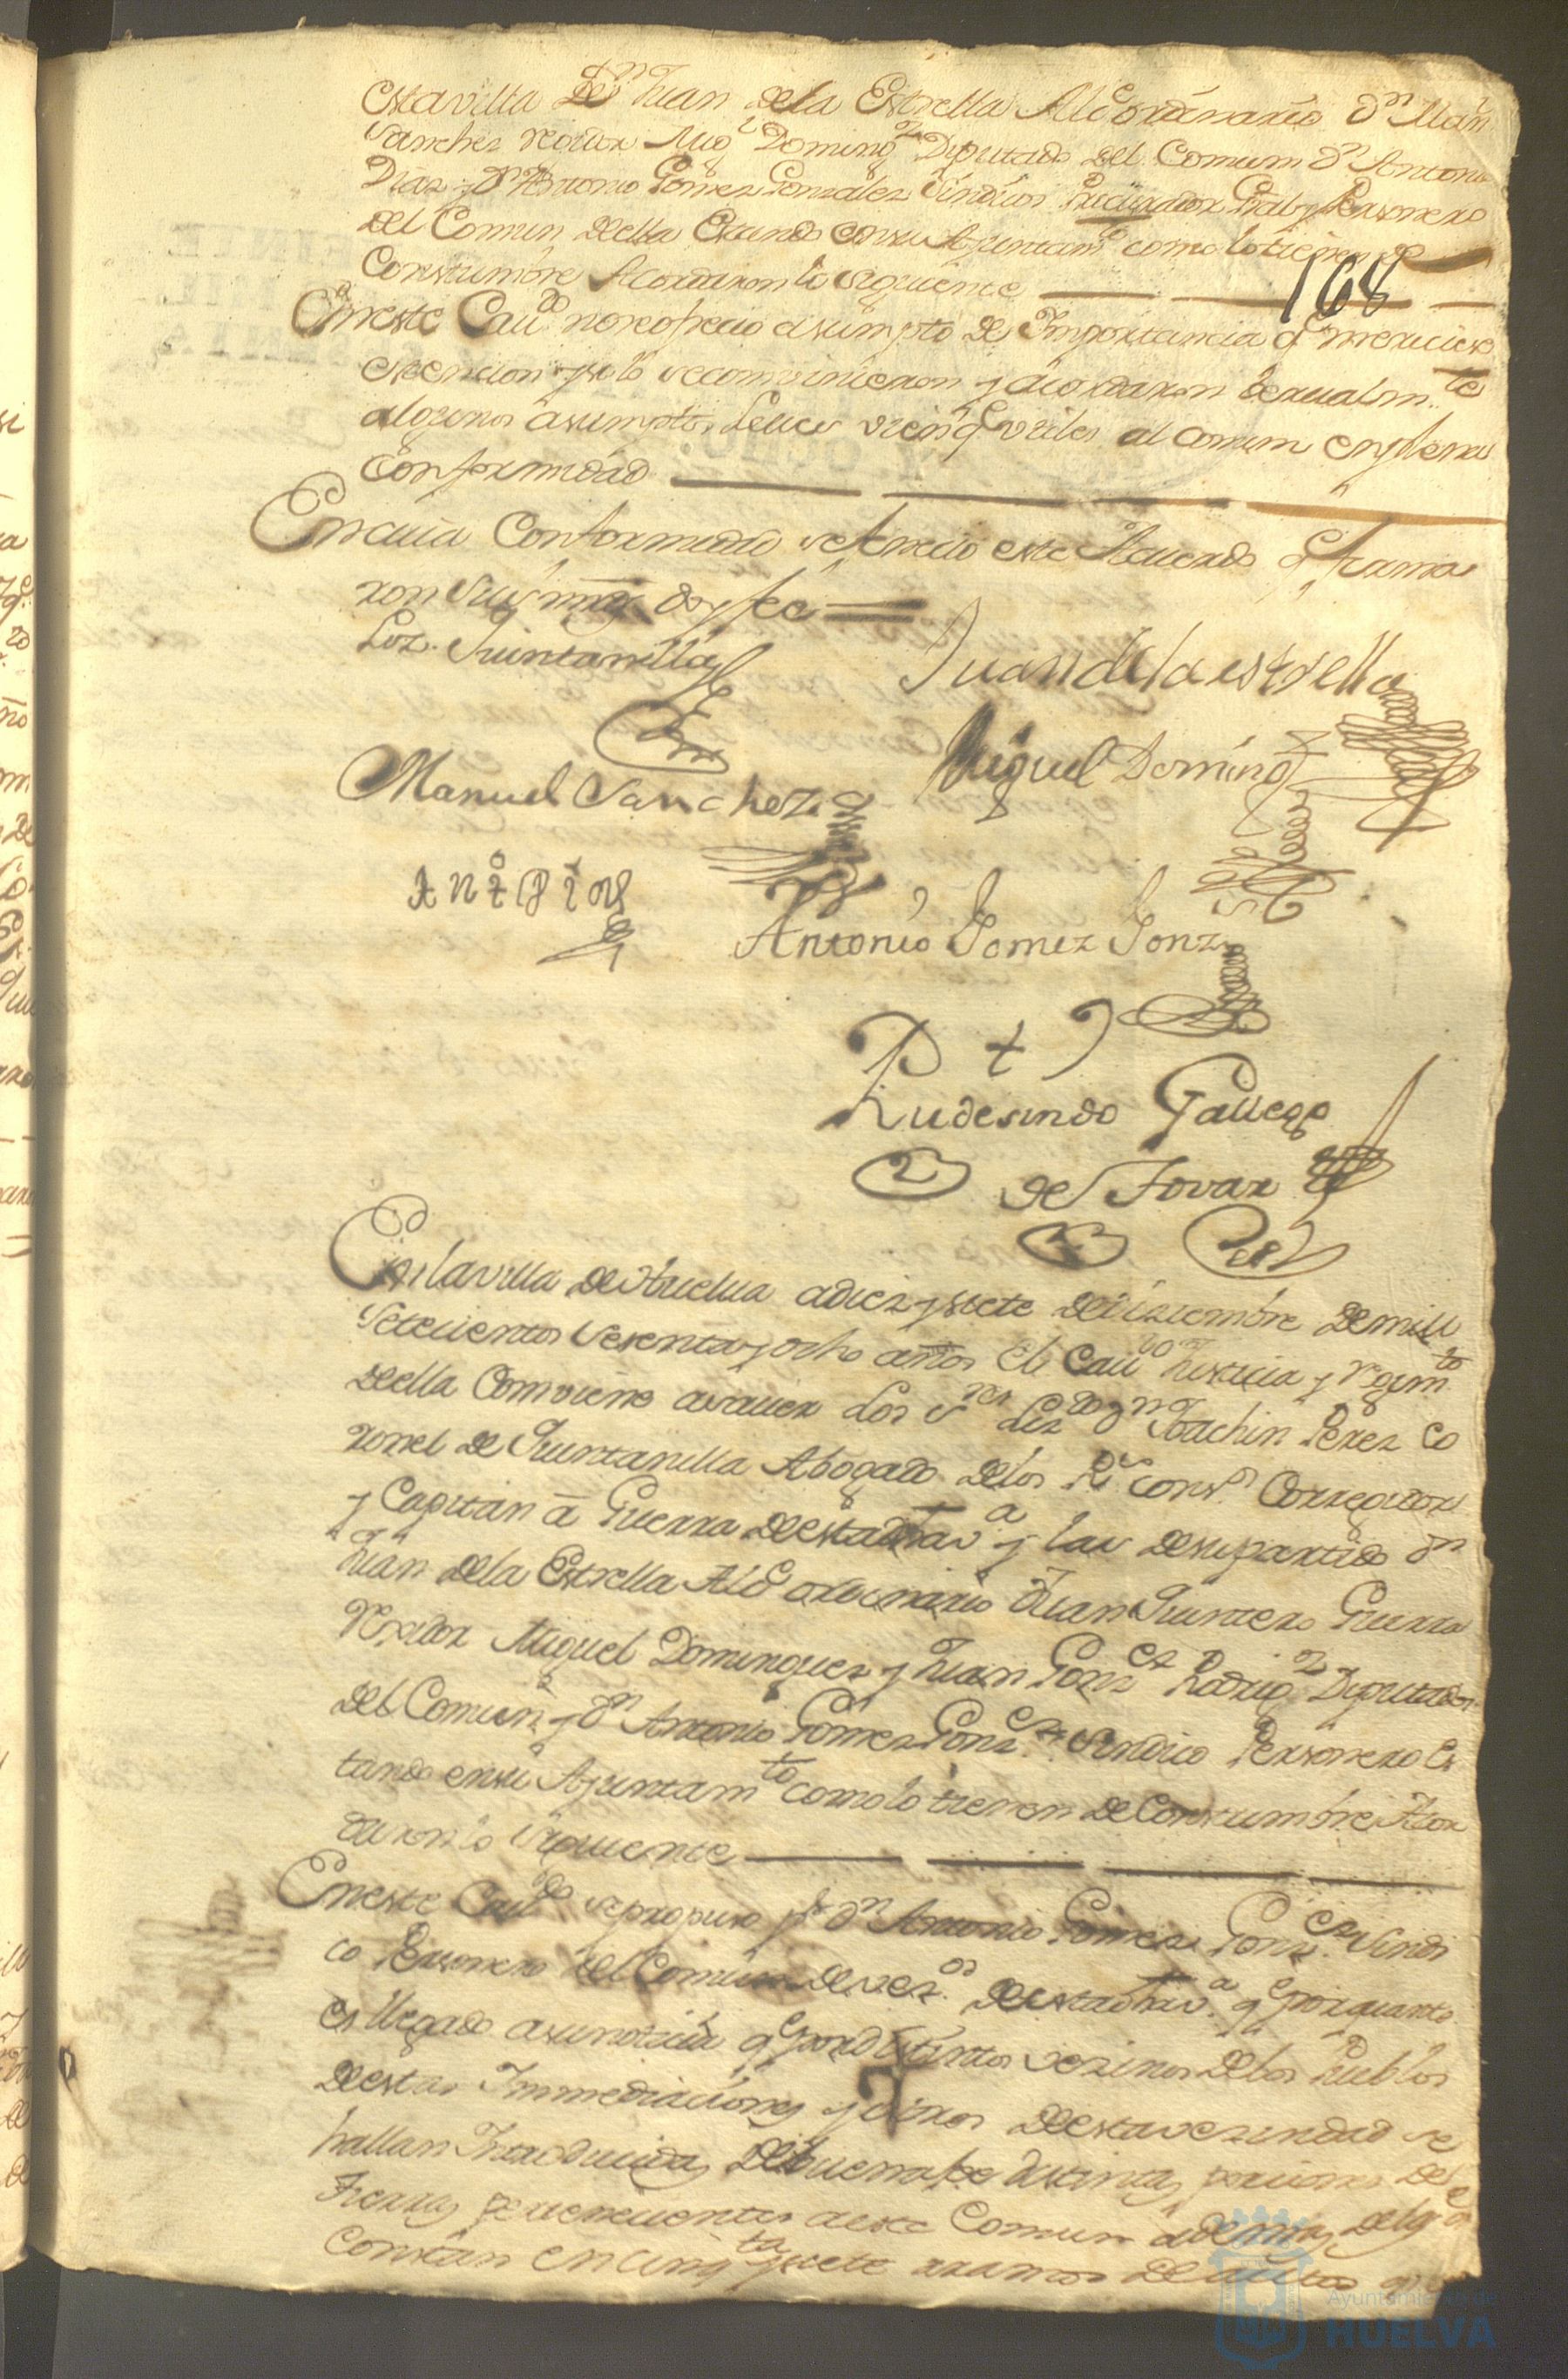 esta villa Dn Juan de la Estrella Alce ordinario Dn Man
Sanchez Rexidor Migl Doming Diputado del Comun Dn Antonio
Diaz y Dn Antonio Gomez Gonzalez Sindicos Procurador Gral y Personero
del Comun della Estando en su Ayuntamto como lo tienen de
Constumbre Acordaron lo siguiente
168
En este Caudo no se ofrecio asumpto de Importancia qe mereciese
atencion y solo se combinieron y acordaron berualmte
algunos asumptos leues vien qe vtiles al comun en plena
Conformidad
En cuia Conformidad se feneció este Acuerdo qe firma
ron Sus mrds doy fee
Lcdo Quintanilla
Juan de la estrella
Manuel Sanchez
Miguel Doming
Antonio Gomez Gonz
Rudesindo Gallego
de Tovar
En la villa de Huelua a diez y siete de Diziembre de mill
Setecientos Sesenta y ocho años el Caudo Justicia y Regimto
de ella Combiene a sauer Los Sres Lizdo Dn Joachin Perez Co
ronel de Quintanilla Abogado de los Rs Consos Corregidor
y Capitan á Guerra de esta dha va y las de su partido Dn
Juan de la Estrella Alce ordinario Juan Quintero Guerra
Rexidor Miguel Dominguez y Juan Gonzez Rodrigz Diputados
del Comun y Dn Antonio Gomez Gonzez Sindico Personero Es
tando en su Ayuntamto como lo tienen de Constumbre Acor
daron lo siguiente
En este Caudo se propuso pr Dn Antonio Gomez Gonzez Sindi
co Personero del Comun de vezos de esta dha va qe por quanto
es llegado a su noticia qe por distintos vezinos de los Pueblos
de estas Immediaciones y otros de esta vezindad se
hallan Introducidas de buena fee distintas porciones de
Tierras pertenecientes a este Comun ademas de las qe
Constan en cinqta y siete ramos de autos
Ayuntamiento de
HUELVA